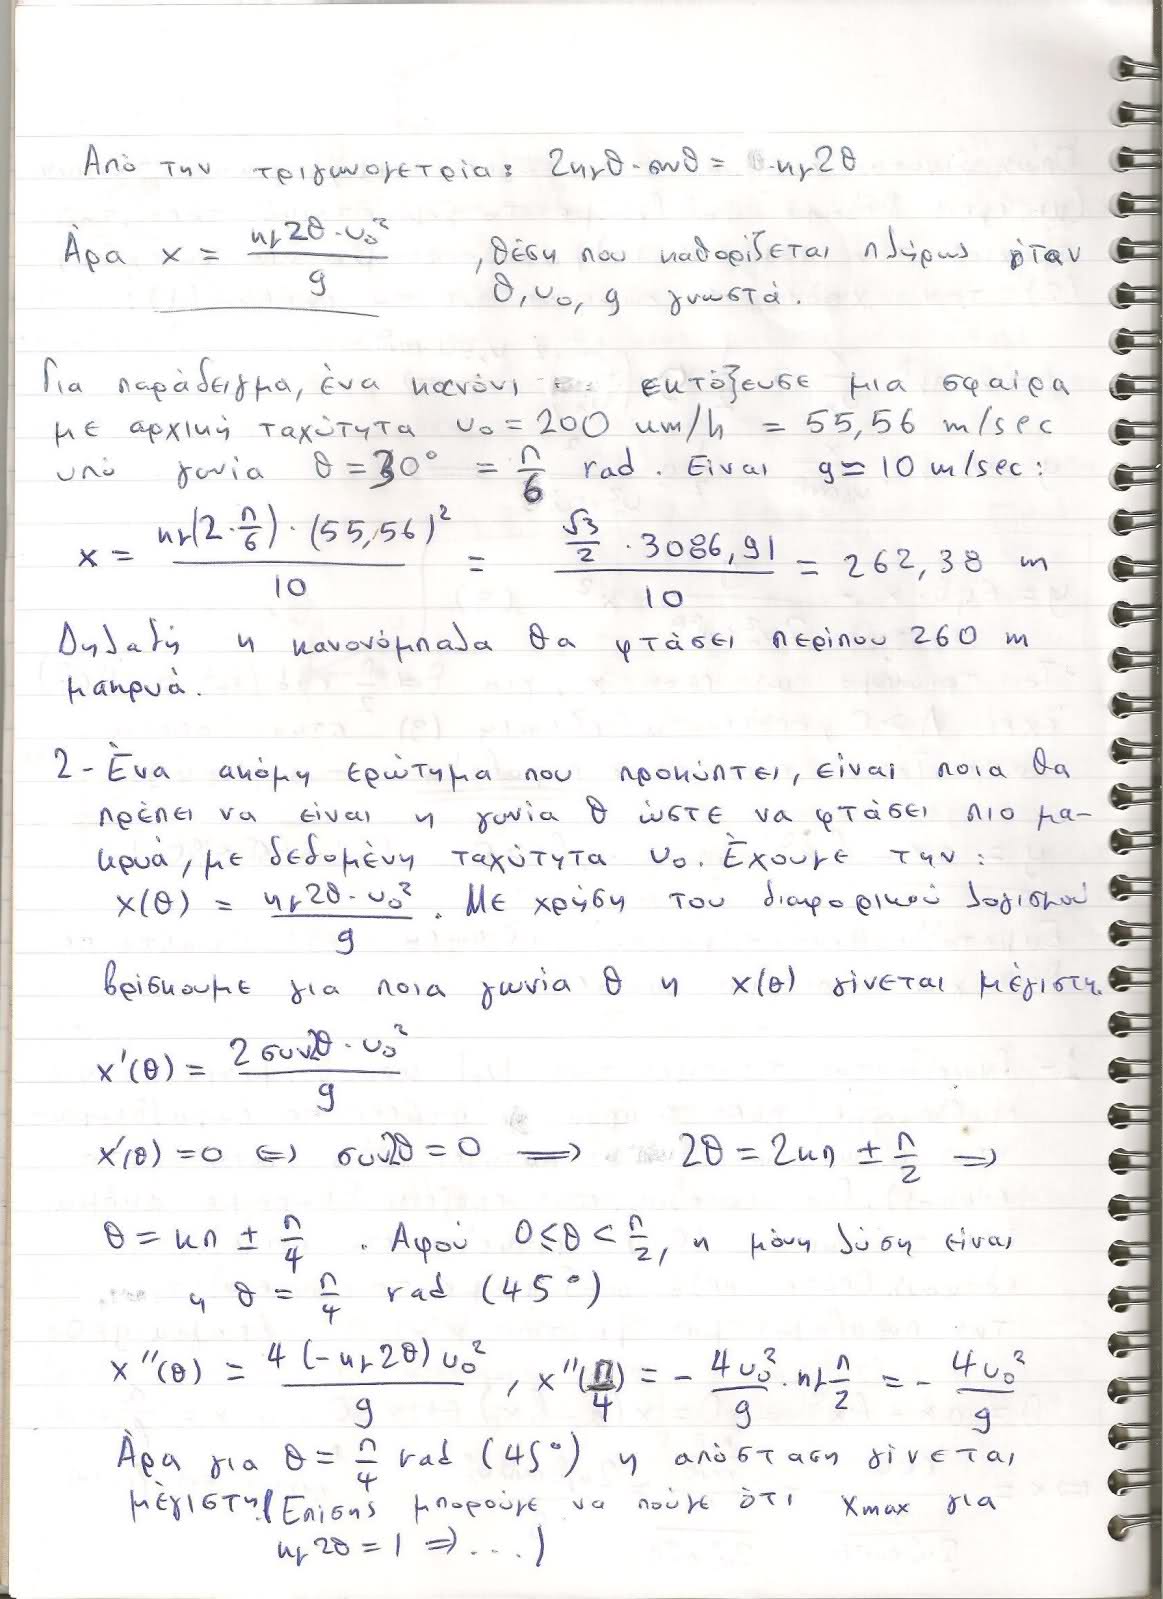 Από την τριγωνομετρία: 2ημθ·συνθ = ημ2θ
Άρα x = ημ2θ·υ₀² / g , θέση που καθορίζεται πλήρως όταν
θ, υ₀, g γνωστά.
Για παράδειγμα, ένα κανόνι εκτόξευσε μια σφαίρα
με αρχική ταχύτητα υ₀ = 200 km/h = 55,56 m/sec
υπό γωνία θ = 30° = π/6 rad. Είναι g ≃ 10 m/sec:
x = ημ(2·π/6)·(55,56)² / 10 = √3/2 · 3086,91 / 10 = 262,38 m
Δηλαδή η κανονόμπαλα θα φτάσει περίπου 260 m
μακρυά.
2- Ένα ακόμη ερώτημα που προκύπτει, είναι ποια θα
πρέπει να είναι η γωνία θ ώστε να φτάσει πιο μα-
κρυά, με δεδομένη ταχύτητα υ₀. Έχουμε την:
x(θ) = ημ2θ·υ₀² / g . Με χρήση του διαφορικού λογισμού
βρίσκουμε για ποια γωνία θ η x(θ) γίνεται μέγιστη.
x'(θ) = 2συν2θ·υ₀² / g
x'(θ) = 0 ⇔ συν2θ = 0 ⟹ 2θ = 2κπ ± π/2 ⟹
θ = κπ ± π/4 . Αφού 0 ≤ θ < π/2, η μόνη λύση είναι
η θ = π/4 rad (45°)
x''(θ) = 4(-ημ2θ)υ₀² / g , x''(π/4) = - 4υ₀²/g · ημπ/2 = - 4υ₀²/g
Άρα για θ = π/4 rad (45°) η απόσταση γίνεται
μέγιστη. (Επίσης μπορούμε να πούμε ότι xmax για
ημ2θ = 1 ⇒ ...)